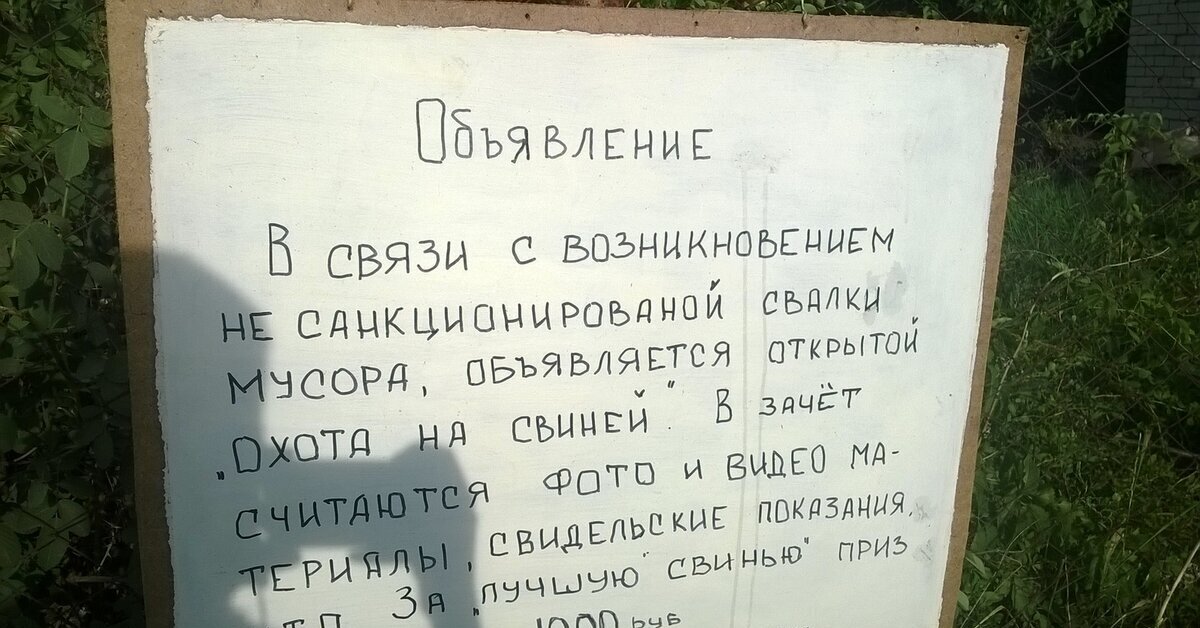 Объявление
В СВЯЗИ С ВОЗНИКНОВЕНИЕМ
НЕ САНКЦИОНИРОВАНОЙ СВАЛКИ
МУСОРА, ОБЪЯВЛЯЕТСЯ ОТКРЫТОЙ
„ОХОТА НА СВИНЕЙ". В ЗАЧЁТ
СЧИТАЮТСЯ ФОТО И ВИДЕО МА-
ТЕРИЯЛЫ, СВИДЕЛЬСКИЕ ПОКАЗАНИЯ,
Т П. ЗА „ЛУЧШУЮ" СВИНЬЮ" ПРИЗ
1000 РУБ